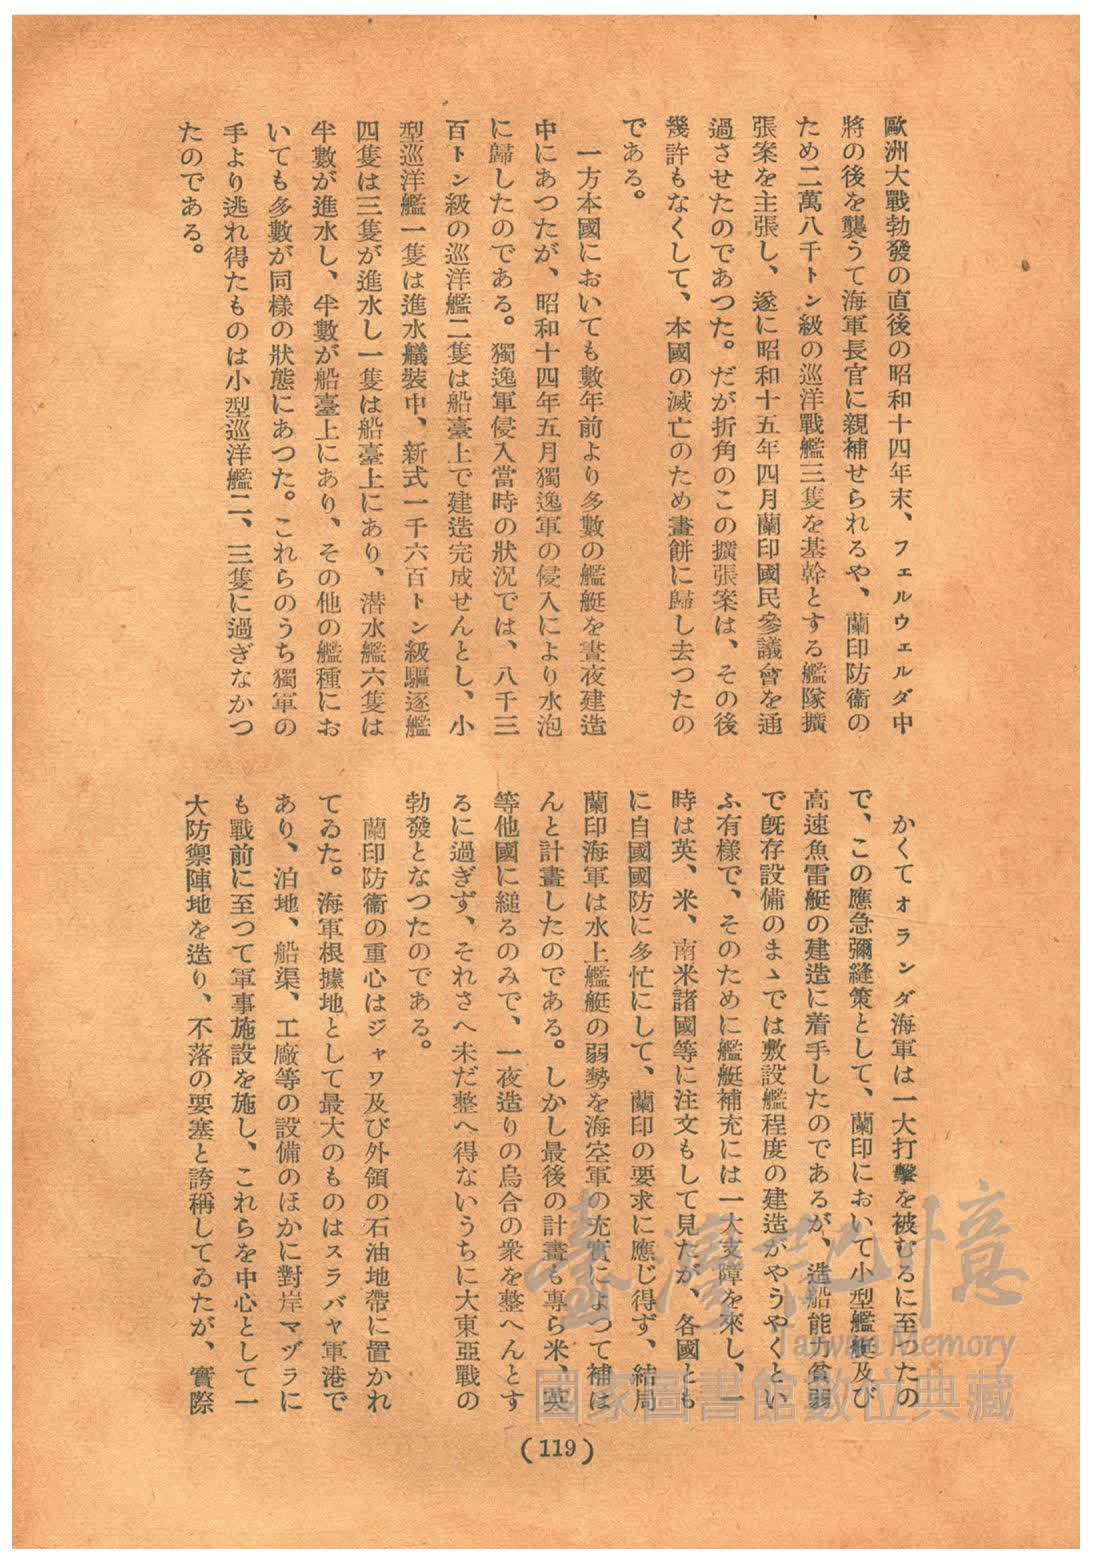 歐洲大戰勃發の直後の昭和十四年末、フェルウェルダ中
將の後を襲うて海軍長官に親補せられるや、蘭印防衞の
ため二萬八千トン級の巡洋戰艦三隻を基幹とする艦隊擴
張案を主張し、遂に昭和十五年四月蘭印國民參議會を通
過させたのであつた。だが折角のこの擴張案は、その後
幾許もなくして、本國の滅亡のため畫餠に歸し去つたの
である。
一方本國においても數年前より多數の艦艇を晝夜建造
中にあつたが、昭和十四年五月獨逸軍の侵入により水泡
に歸したのである。獨逸軍侵入當時の狀況では、八千三
百トン級の巡洋艦二隻は船臺上で建造完成せんとし、小
型巡洋艦一隻は進水艤裝中、新式一千六百トン級驅逐艦
四隻は三隻が進水し一隻は船臺上にあり、潛水艦六隻は
半數が進水し、半數が船臺上にあり、その他の艦種にお
いても多數が同樣の狀態にあつた。これらのうち獨軍の
手より逃れ得たものは小型巡洋艦二、三隻に過ぎなかつ
たのである。
かくてオランダ海軍は一大打擊を被むるに至つたの
で、この應急彌縫策として、蘭印において小型艦艇及び
高速魚雷艇の建造に着手したのであるが、造船能力貧弱
で既存設備のまゝでは敷設艦程度の建造がやうやくとい
ふ有樣で、そのために艦艇補充には一大支障を來し、一
時は英、米、南米諸國等に注文もして見たが、各國とも
に自國國防に多忙にして、蘭印の要求に應じ得ず、結局
蘭印海軍は水上艦艇の弱勢を海空軍の充實によつて補は
んと計畫したのである。しかし最後の計畫も專ら米、英
等他國に縋るのみで、一夜造りの烏合の衆を整へんとす
るに過ぎず、それさへ未だ整へ得ないうちに大東亞戰の
勃發となつたのである。
蘭印防衞の重心はジャワ及び外領の石油地帶に置かれ
てゐた。海軍根據地として最大のものはスラバヤ軍港で
あり、泊地、船渠、工廠等の設備のほかに對岸マヅラに
も戰前に至つて軍事施設を施し、これらを中心として一
大防禦陣地を造り、不落の要塞と誇稱してゐたが、實際
(119)
臺灣記憶
Taiwan Memory
國家圖書館數位典藏